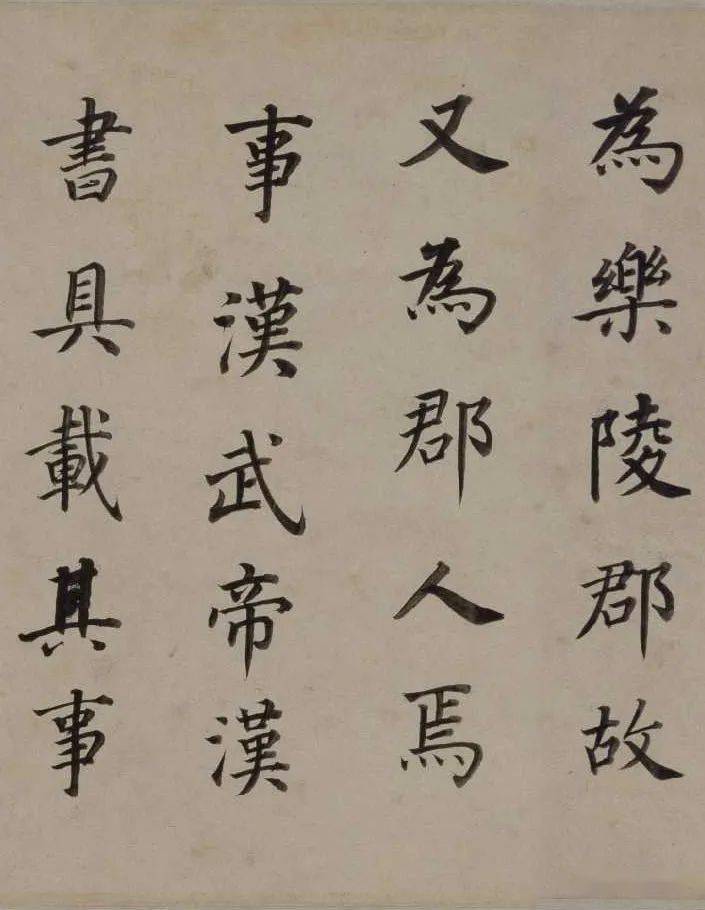 為樂陵郡故
又為郡人焉
事漢武帝漢
書具載其事